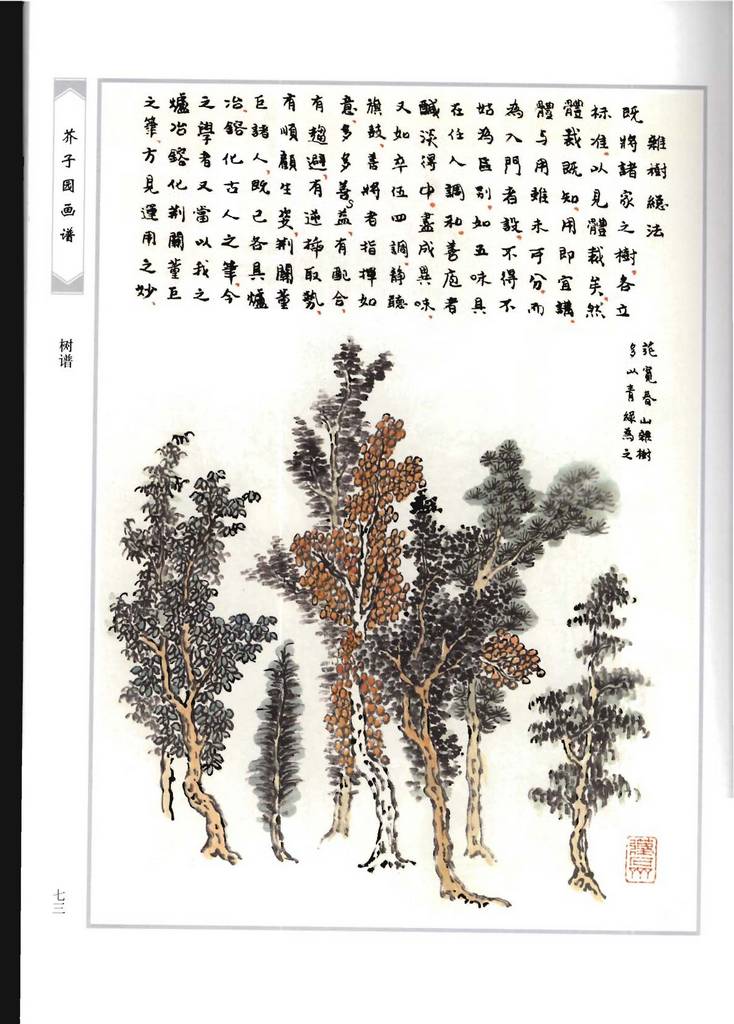 雜樹總法
既將諸家之樹各立
标准以見體裁矣然
體裁既知用即宜講
體与用雖未可分而
為入門者設不得不
姑為區别如五味具
在任人調和善庖者
鹹淡得中盡成異味
又如卒伍四調静聽
旗鼓善將者指揮如
意多多善益有配合
有趨避有逆稀取勢
有順顧生姿荆關董
巨諸人既已各具爐
冶鎔化古人之筆今
之學者又當以我之
爐冶鎔化荆關董巨
之筆方見運用之妙
范寬春山雜樹
多以青緑為之
芥子园画谱
树谱
七三